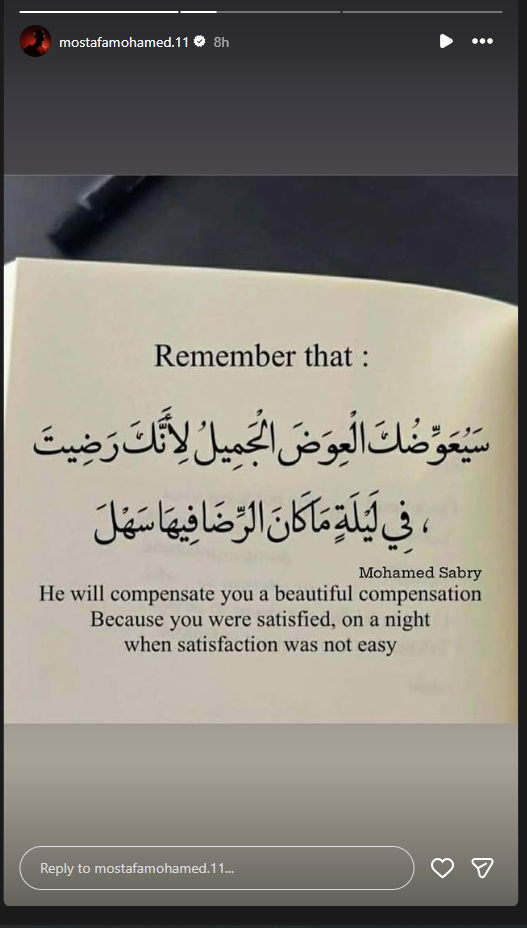 mostafamohamed.11 8h
Remember that :
سَيُعَوِّضُكَ الْعِوَضَ الْجَمِيلُ لِأَنَّكَ رَضِيتَ
، فِي لَيْلَةٍ مَا كَانَ الرِّضَا فِيهَا سَهْلَ
Mohamed Sabry
He will compensate you a beautiful compensation
Because you were satisfied, on a night
when satisfaction was not easy
Reply to mostafamohamed.11...